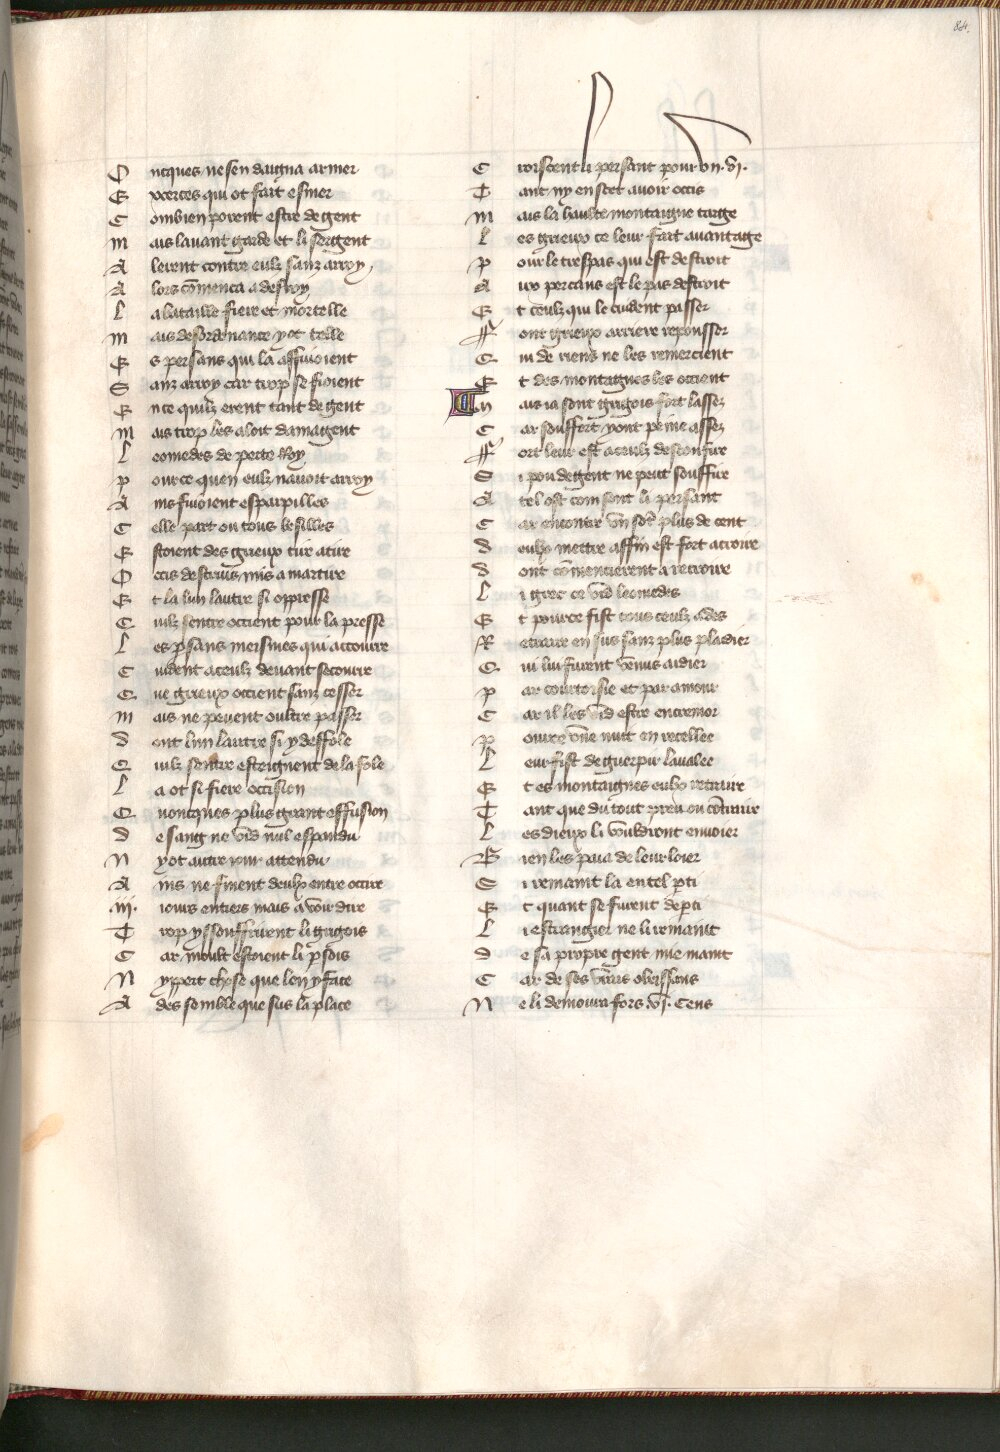 84.
Oncques ne sen daigna armer
Exerces qui ot fait esmer
Combien porent estre de gent
Mais lavant garde et li sergent
Alerent contre eulz sanz arroy
Alors cōmenca a desroy
La bataille fiere et mortelle
Mais desordenance y ot telle
Es persans qui la assuioient
Sanz arroy car trop se fioient
En ce quilz erent tant de gent
Mais trop les aloit damagent
Leomedes de perte Roy
Pour ce quen eulz navoit arroy
Ains fuioient esparpilles
Celle part ou tous les filles
Estoient des grieux tire a tire
Occis destruis mis a martire
Et la lun lautre si oppresse
Eulz sentre occient pour la presse
Les p̄sans meismes qui acourre
Cuident a ceulz devant secourre
Que grieux occient sanz cesser
Mais ne peuent oultre passer
Dont lun lautre si y deffole
Quilz sentre esteignent de la fole
La ot si fiere occision
Quoncques plus grant effusion
De sang ne vid nul espandu
Ny ot autre jour attendu
Ains ne finent deulx entre occire
.iii. jours entiers mais a voir dire
Trop y souffrirent li grigois
Car moult estoient li p̄sois
Ny pert chose que len y face
Ades semble que sus la place
Croiscent li persant pour vn .vi.
Tant ny en scet avoir occis
Mais la haulte montaigne targe
Les grieux ce leur fait avantage
Pour le trespas qui est destroit
Aux percans est le pas destroit
Et ceulz qui le cuident passer
Font grieux arriere repousser
Qui de riens ne les remercient
Et des montagnes les occient
Mais ia sont grigois fort lassez
Car souffert y ont peine assez
Fort leur est a ceulz desconfire
Si pou de gent ne peut souffire
A tel ost com sont li persant
Car encontre vn sōt plus de cent
Deulx mettre affin est fort a croire
Dont cōmencierent a retroire
Li grec ce vid leomedes
Et pour ce fist tous ceulz ades
Retraire en sus sanz plus plaidier
Qui lui furent venus aidier
Par courtoisie et par amour
Car il les vid estre en cremor
Pour vne nuit en recellee
Leur fist deguerpir la valee
Et es montaignes eulx retraire
Tant que du tout preu ou cōtraire
Les dieux li vouldront envoier
Bien les paia de leur loier
Si remaint la en tel p̄ti
Et quant se furent dep̄ti
Li estrangier ne li remaint
De sa propre gent mie maint
Car de ses vrais obeissans
Ne li demoura fors .vi. Cens